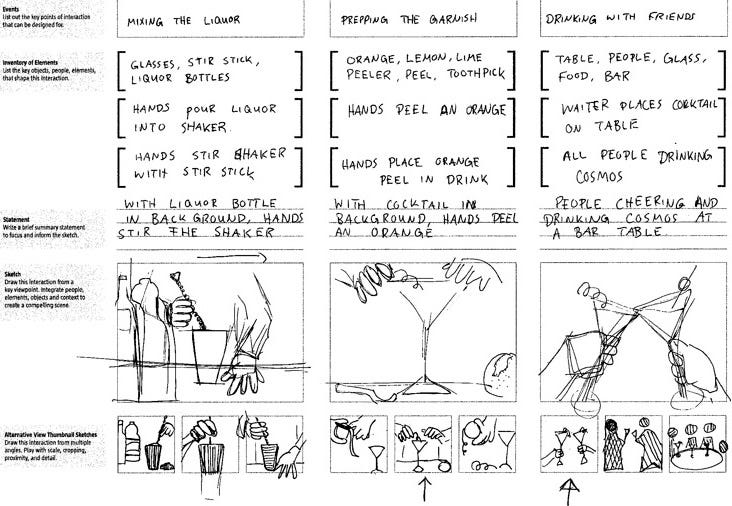 Events
List out the key points of interaction
that can be designed for.
MIXING THE LIQUOR
PREPPING THE GARNISH
DRINKING WITH FRIENDS
Inventory of Elements
List the key objects, people, elements,
that shape this interaction.
GLASSES, STIR STICK,
LIQUOR BOTTLES
ORANGE, LEMON, LIME
PEELER, PEEL, TOOTHPICK
TABLE, PEOPLE, GLASS,
FOOD, BAR
HANDS POUR LIQUOR
INTO SHAKER
HANDS PEEL AN ORANGE
WAITER PLACES COCKTAIL
ON TABLE
HANDS STIR SHAKER
WITH STIR STICK
HANDS PLACE ORANGE
PEEL IN DRINK
ALL PEOPLE DRINKING
COSMOS
Statement
Write a brief summary statement
to focus and inform the sketch.
WITH LIQUOR BOTTLE
IN BACKGROUND, HANDS
STIR THE SHAKER
WITH COCKTAIL IN
BACKGROUND, HANDS PEEL
AN ORANGE
PEOPLE CHEERING AND
DRINKING COSMOS AT
A BAR TABLE
Sketch
Draw this interaction from a
key viewpoint. Integrate people,
elements, objects and context to
create a compelling scene.
Alternative View Thumbnail Sketches
Draw this interaction from multiple
angles. Play with scale, cropping,
proximity, and detail.